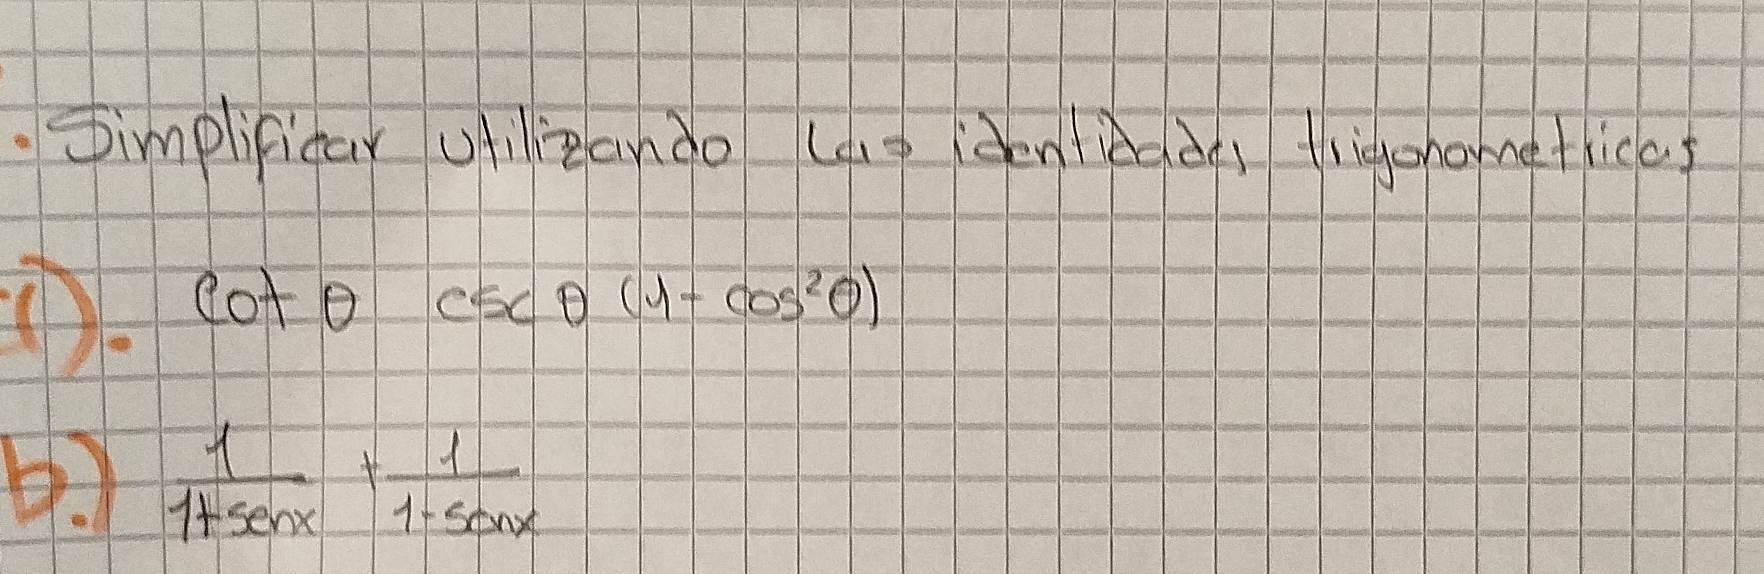 . Simplificar utilizando las identidades trigonometricas
a). cot θ csc θ (1 - cos²θ)
b.) 1/(1+senx) + 1/(1-senx)